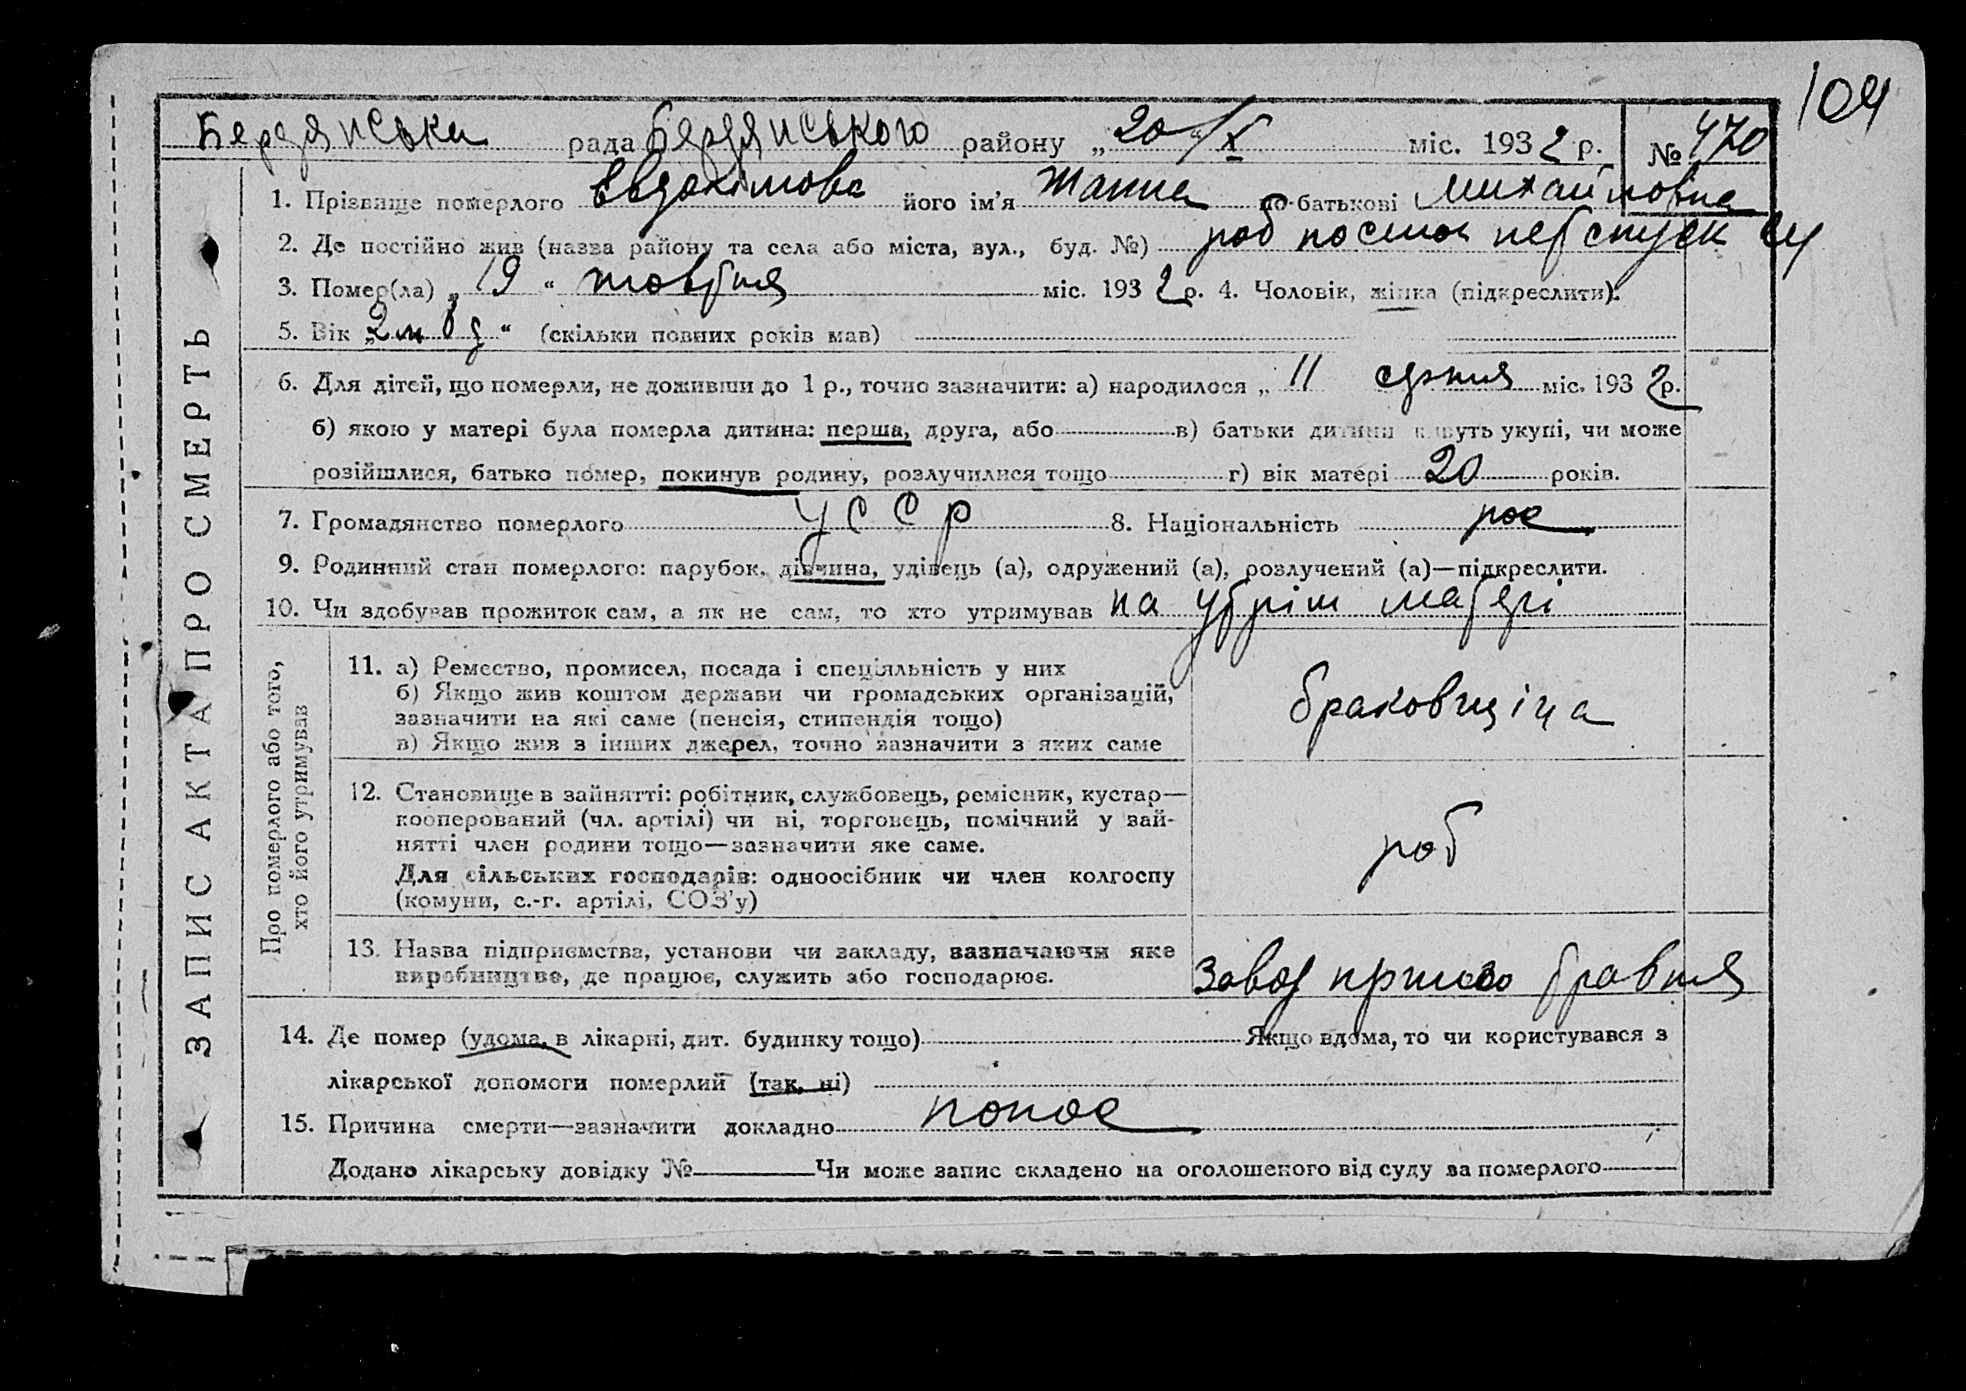 104
Бердянська рада Бердянського району „20“/X міс. 1932 р. № 470
1. Прізвище померлого Євдокімова його ім'я Жанна по-батькові Михайловна
2. Де постійно жив (назва району та села або міста, вул., буд. №) роб посьолок
3. Помер(ла) „19“ жовтня міс. 1932 р. 4. Чоловік, жінка (підкреслити).
5. Вік „2 м 8 д“ (скільки повних років мав)
6. Для дітей, що померли, не доживши до 1 р., точно зазначити: а) народилося „11 серпня міс. 1932 р.
б) якою у матері була померла дитина: перша, друга, або в) батьки дитини живуть укупі, чи може
розійшлися, батько помер, покинув родину, розлучилися тощо г) вік матері 20 років.
7. Громадянство померлого УССР 8. Національність рос
9. Родинний стан померлого: парубок, дівчина, удівець (а), одружений (а), розлучений (а)—підкреслити.
10. Чи здобував прожиток сам, а як не сам, то хто утримував на утрім матері
ЗАПИС АКТА ПРО СМЕРТЬ
Про померлого або того,
хто його утримував
11. а) Ремество, промисел, посада і спеціяльність у них
б) Якщо жив коштом держави чи громадських організацій,
зазначити на які саме (пенсія, стипендія тощо)
в) Якщо жив з інших джерел, точно зазначити з яких саме
браковщіца
12. Становище в зайнятті: робітник, службовець, ремісник, кустар—
кооперований (чл. артілі) чи ні, торговець, помічний у зай-
нятті член родини тощо—зазначити яке саме.
Для сільських господарів: одноосібник чи член колгоспу
(комуни, с.-г. артілі, СОЗ'у)
роб
13. Назва підприємства, установи чи закладу, зазначаючи яке
виробництво, де працює, служить або господарює.
завод
14. Де помер (удома, в лікарні, дит. будинку тощо) Якщо вдома, то чи користувався з
лікарської допомоги померлий (так, ні)
15. Причина смерти—зазначити докладно понос
Додано лікарську довідку № Чи може запис складено на оголошеного від суду за померлого